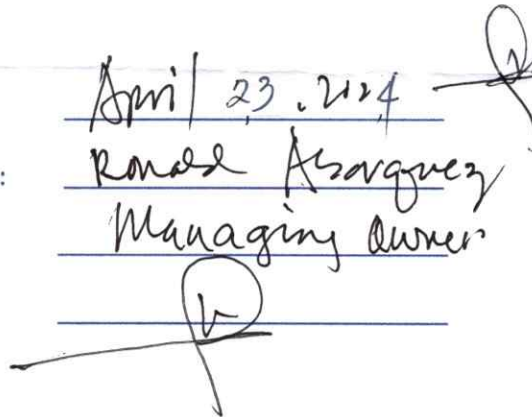 April 23, 2024
:
Ronald Abarquez
Managing Owner